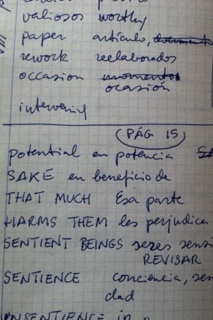 valiosos worthy
paper artículo,
rework reelaborados
occasion momentos
ocasión
intervening
(PÁG 15)
potential en potencia
SAKE en beneficio de
THAT MUCH Esa parte
HARMS THEM les perjudica
SENTIENT BEINGS seres sensi
REVISAR
SENTIENCE conciencia, sen
dad
INSENTIENCE in